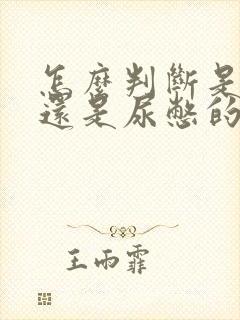 怎麼判斷是
還是尿憋的
王雨霏